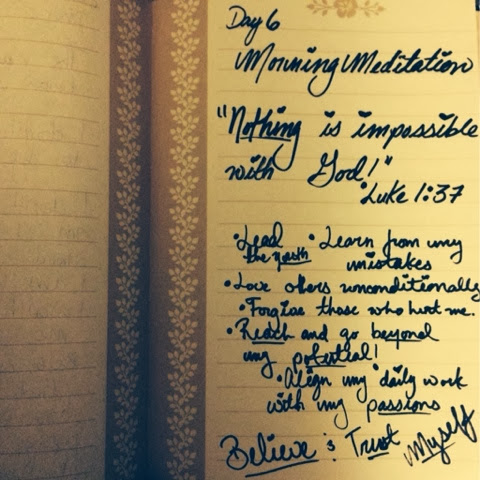 Day 6
Morning Meditation
"Nothing is impossible
with God!"
Luke 1:37
• Lead the youth • Learn from my mistakes
• Love others unconditionally
• Forgive those who hurt me.
• Reach and go beyond
my potential!
• Align my daily work
with my passions
Believe & Trust Myself